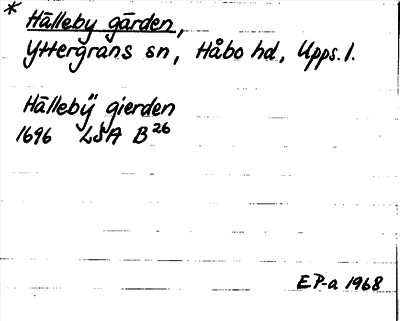 * Hälleby gärden,
Yttergrans sn, Håbo hd, Upps. l.
Hällebÿ gierden
1696 LSA B26
E P-a 1968